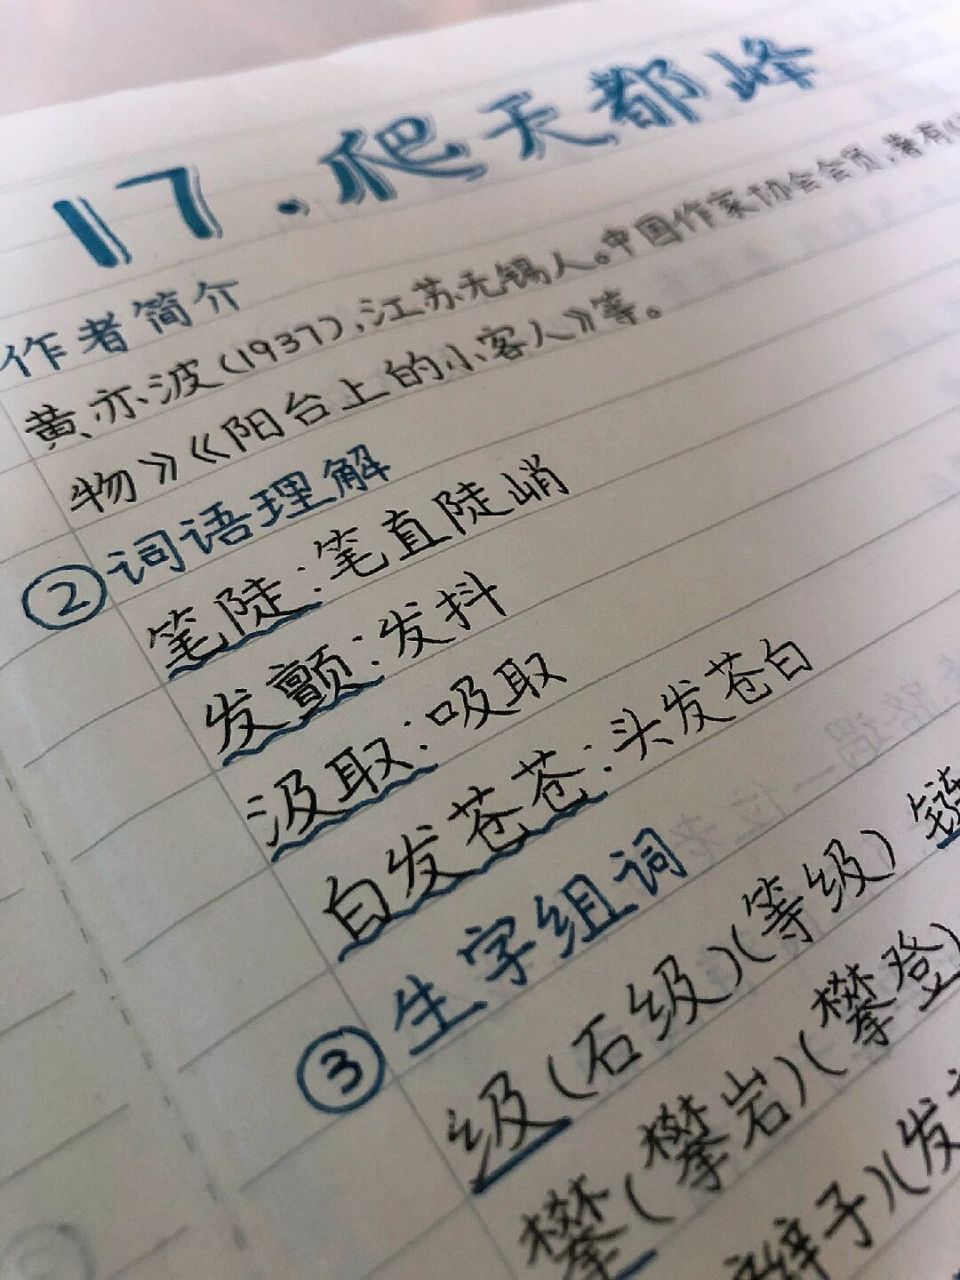 17.爬天都峰
作者简介
黄亦波(1937),江苏无锡人。中国作家协会会员,著有《
物》《阳台上的小客人》等。
②词语理解
笔陡:笔直陡峭
发颤:发抖
汲取:吸取
白发苍苍:头发苍白
③生字组词
级(石级)(等级) 链
攀(攀岩)(攀登)
辫子)(发